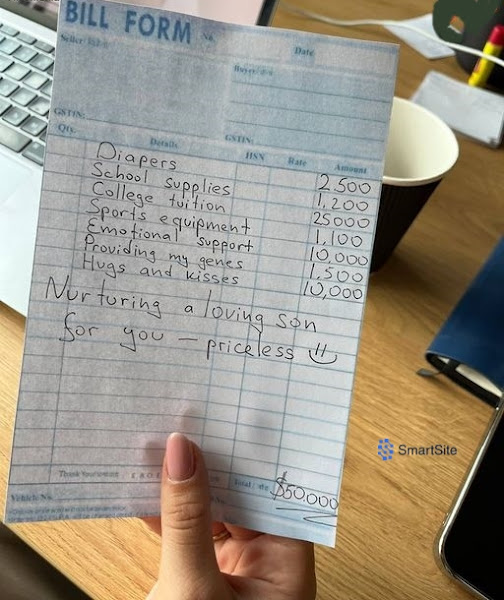 BILL FORM
No.
Date
Seller
Buyer
GSTIN:
GSTIN:
Qty. Details HSN Rate Amount
Diapers 2,500
School supplies 1,200
College tuition 25000
Sports equipment 1,100
Emotional support 10,000
Providing my genes 1,500
Hugs and kisses 10,000
Nurturing a loving son
for you – priceless
SmartSite
Thank You
Total $50.000
Vehicle No.